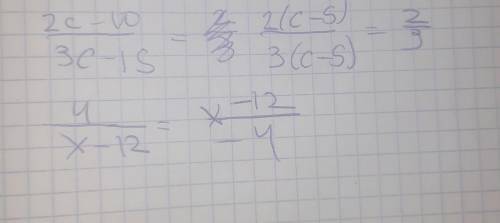 (2c - 10)/(3c - 15) = 2(c - 5)/3(c - 5) = 2/3
4/(x - 12) = (x - 12)/(-4)